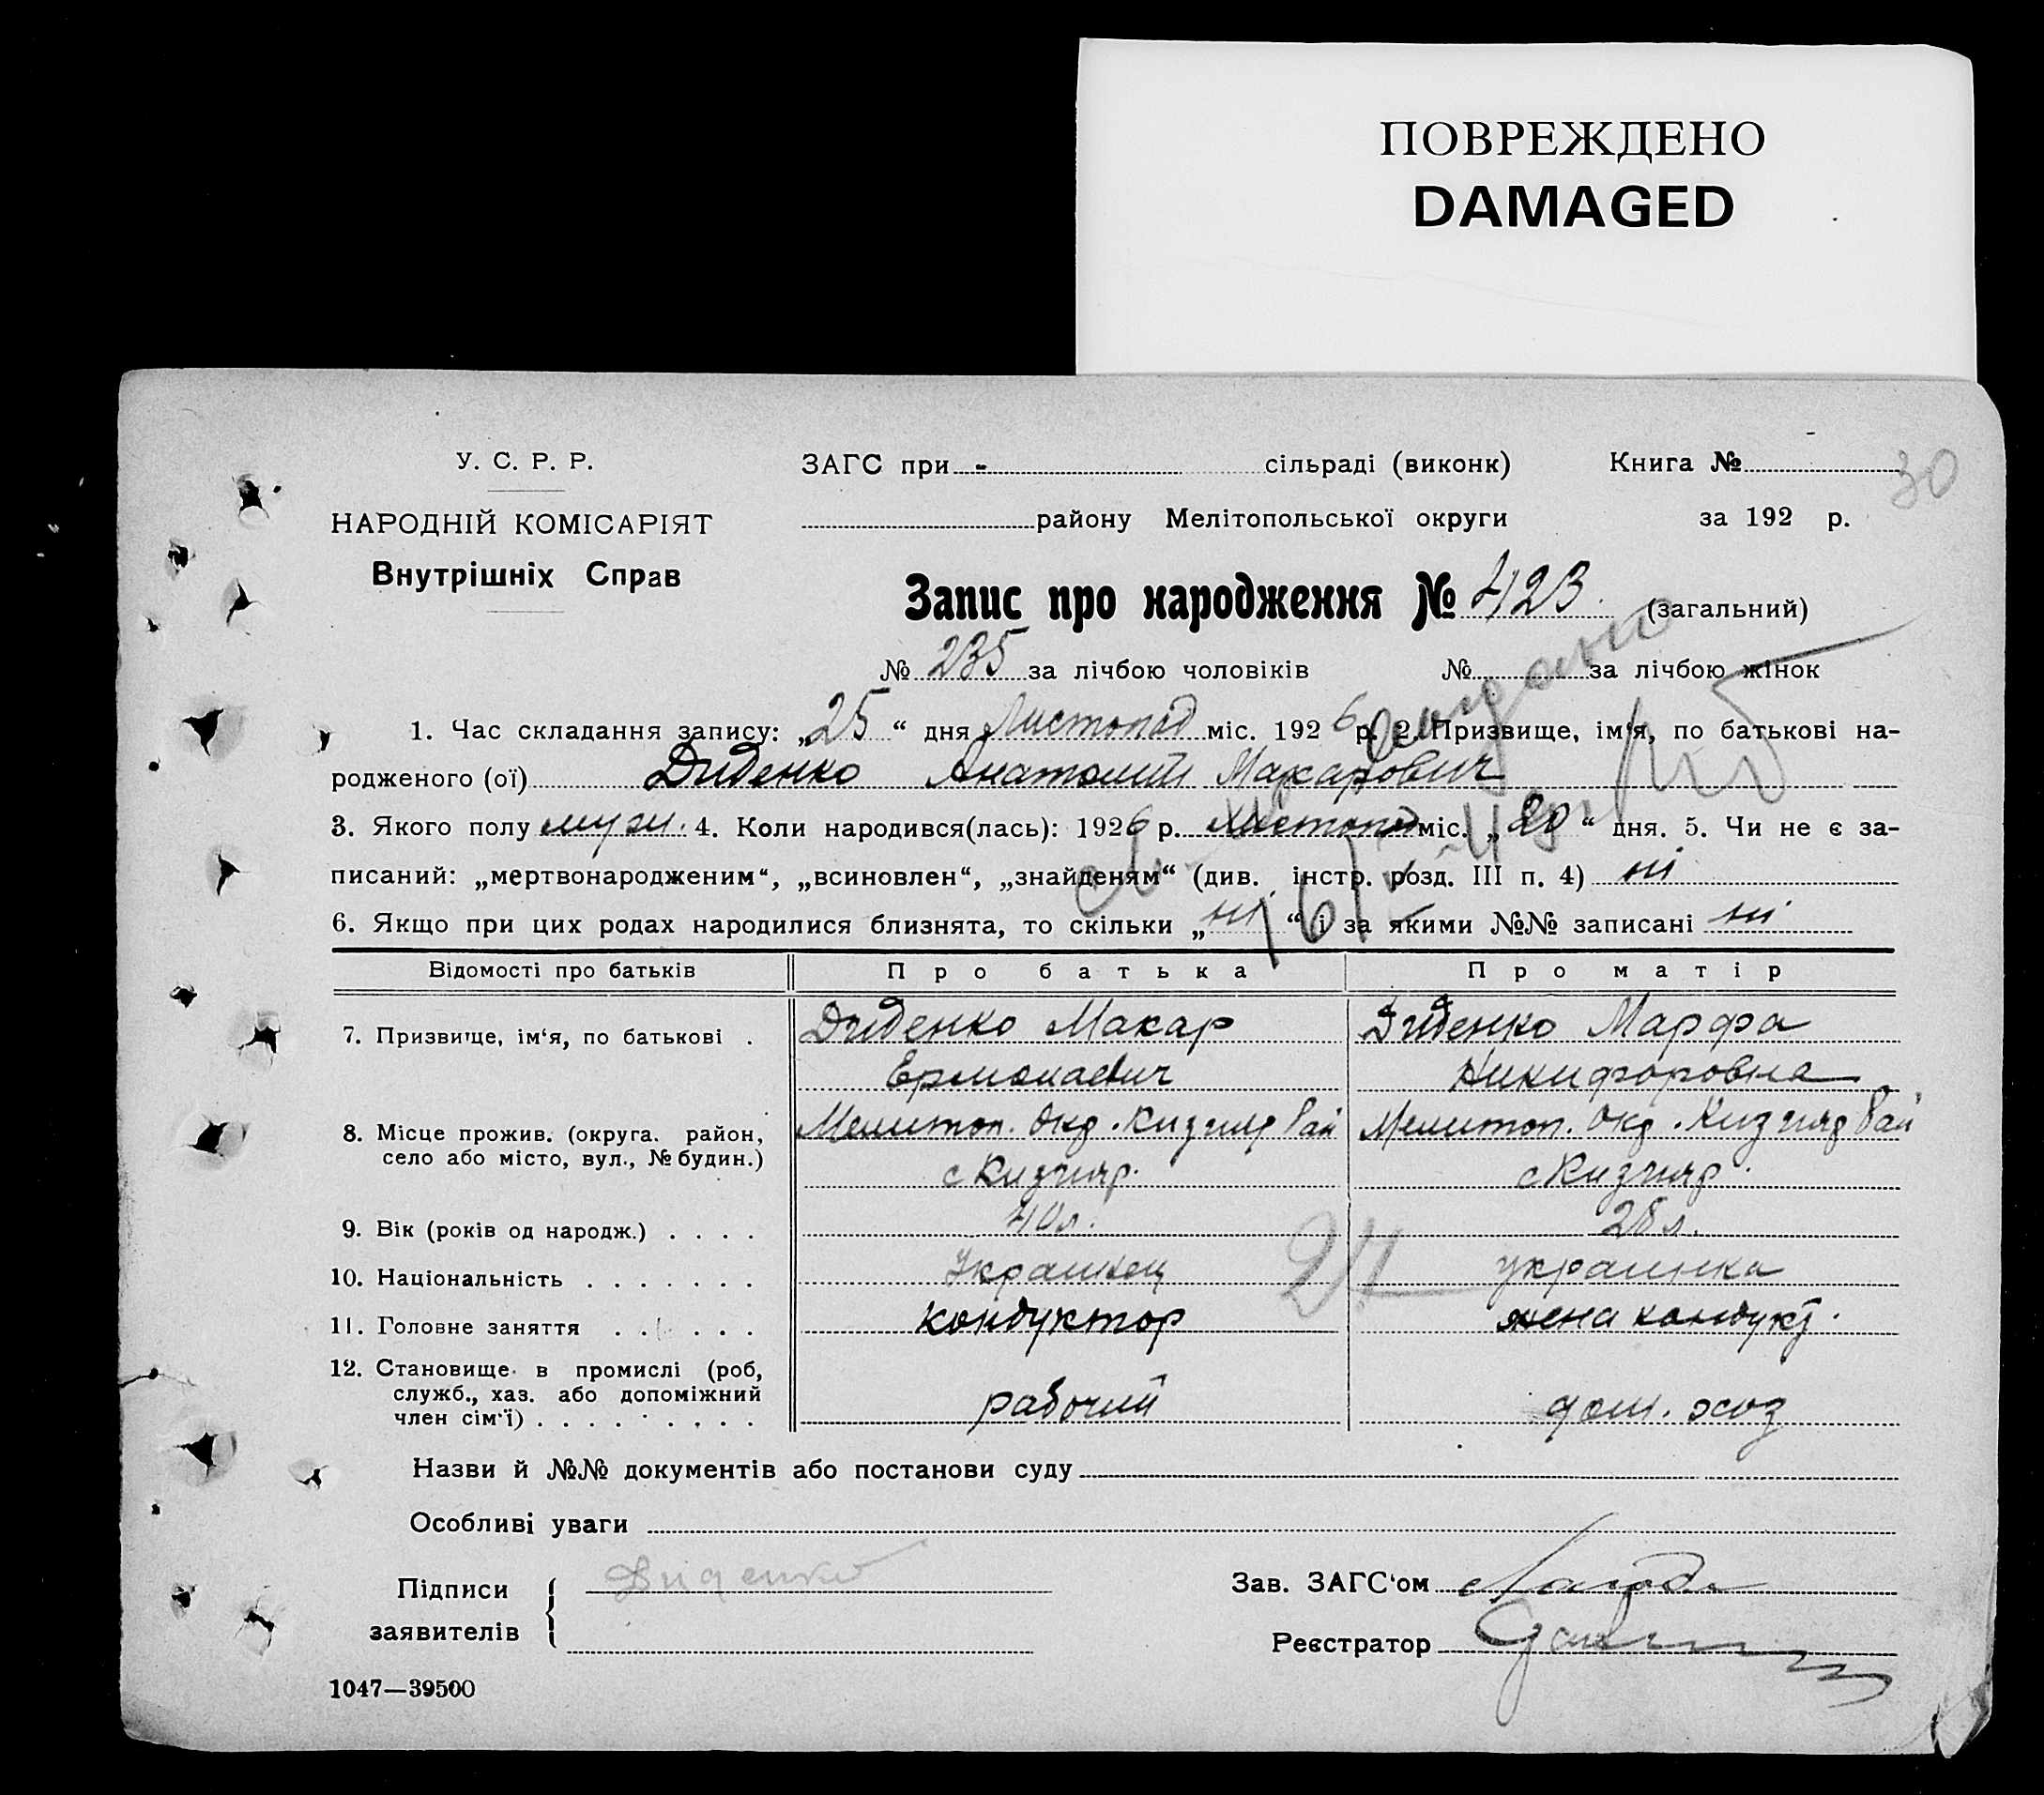 ПОВРЕЖДЕНО
DAMAGED
30
У. С. Р. Р.
ЗАГС при - сільраді (виконк)
Книга №
НАРОДНІЙ КОМІСАРІЯТ
району Мелітопольської округи
за 192 р.
Внутрішніх Справ
Запис про народження № 423. (загальний)
№ 235 за лічбою чоловіків № за лічбою жінок
1. Час складання запису: „25“ дня Листопад міс. 1926 р. 2. Призвище, ім'я, по батькові на-
родженого (ої) Диденко Анатолий Макарович
3. Якого полу муж. 4. Коли народився(лась): 1926 р. Листопад міс. „20“ дня. 5. Чи не є за-
писаний: „мертвонародженим“, „всиновлен“, „знайденям“ (див. інстр. розд. III п. 4) ні
6. Якщо при цих родах народилися близнята, то скільки „ні“ і за якими №№ записані ні
Відомості про батьків
Про батька
Про матір
7. Призвище, ім'я, по батькові .
Диденко Макар
Диденко Марфа
Ермолаевич
Никифоровна
8. Місце прожив. (округа. район,
село або місто, вул., № будин.)
Мелитоп. Окр. Кизияр рай
Мелитоп. Окр. Кизияр рай
с Кизияр.
с Кизияр.
9. Вік (років од народж.) . . . .
40 л.
28 л.
10. Національність . . . . . . .
Украинец
украинка
24
11. Головне заняття . . . . . .
кондуктор
жена кондукт.
12. Становище в промислі (роб,
служб., хаз. або допоміжний
член сім'ї) . . . . . . . . .
рабочий
дом. хоз
Назви й №№ документів або постанови суду
Особливі уваги
Підписи
заявителів
Диденко
Зав. ЗАГС'ом
Реєстратор
1047—39500